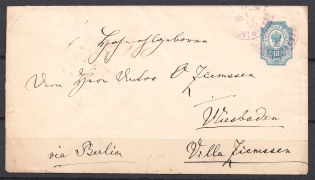 Hochwohlgeboren
Dem Herrn Victor A Ziemssen
Wiesbaden
via Berlin
Villa Ziemssen
10